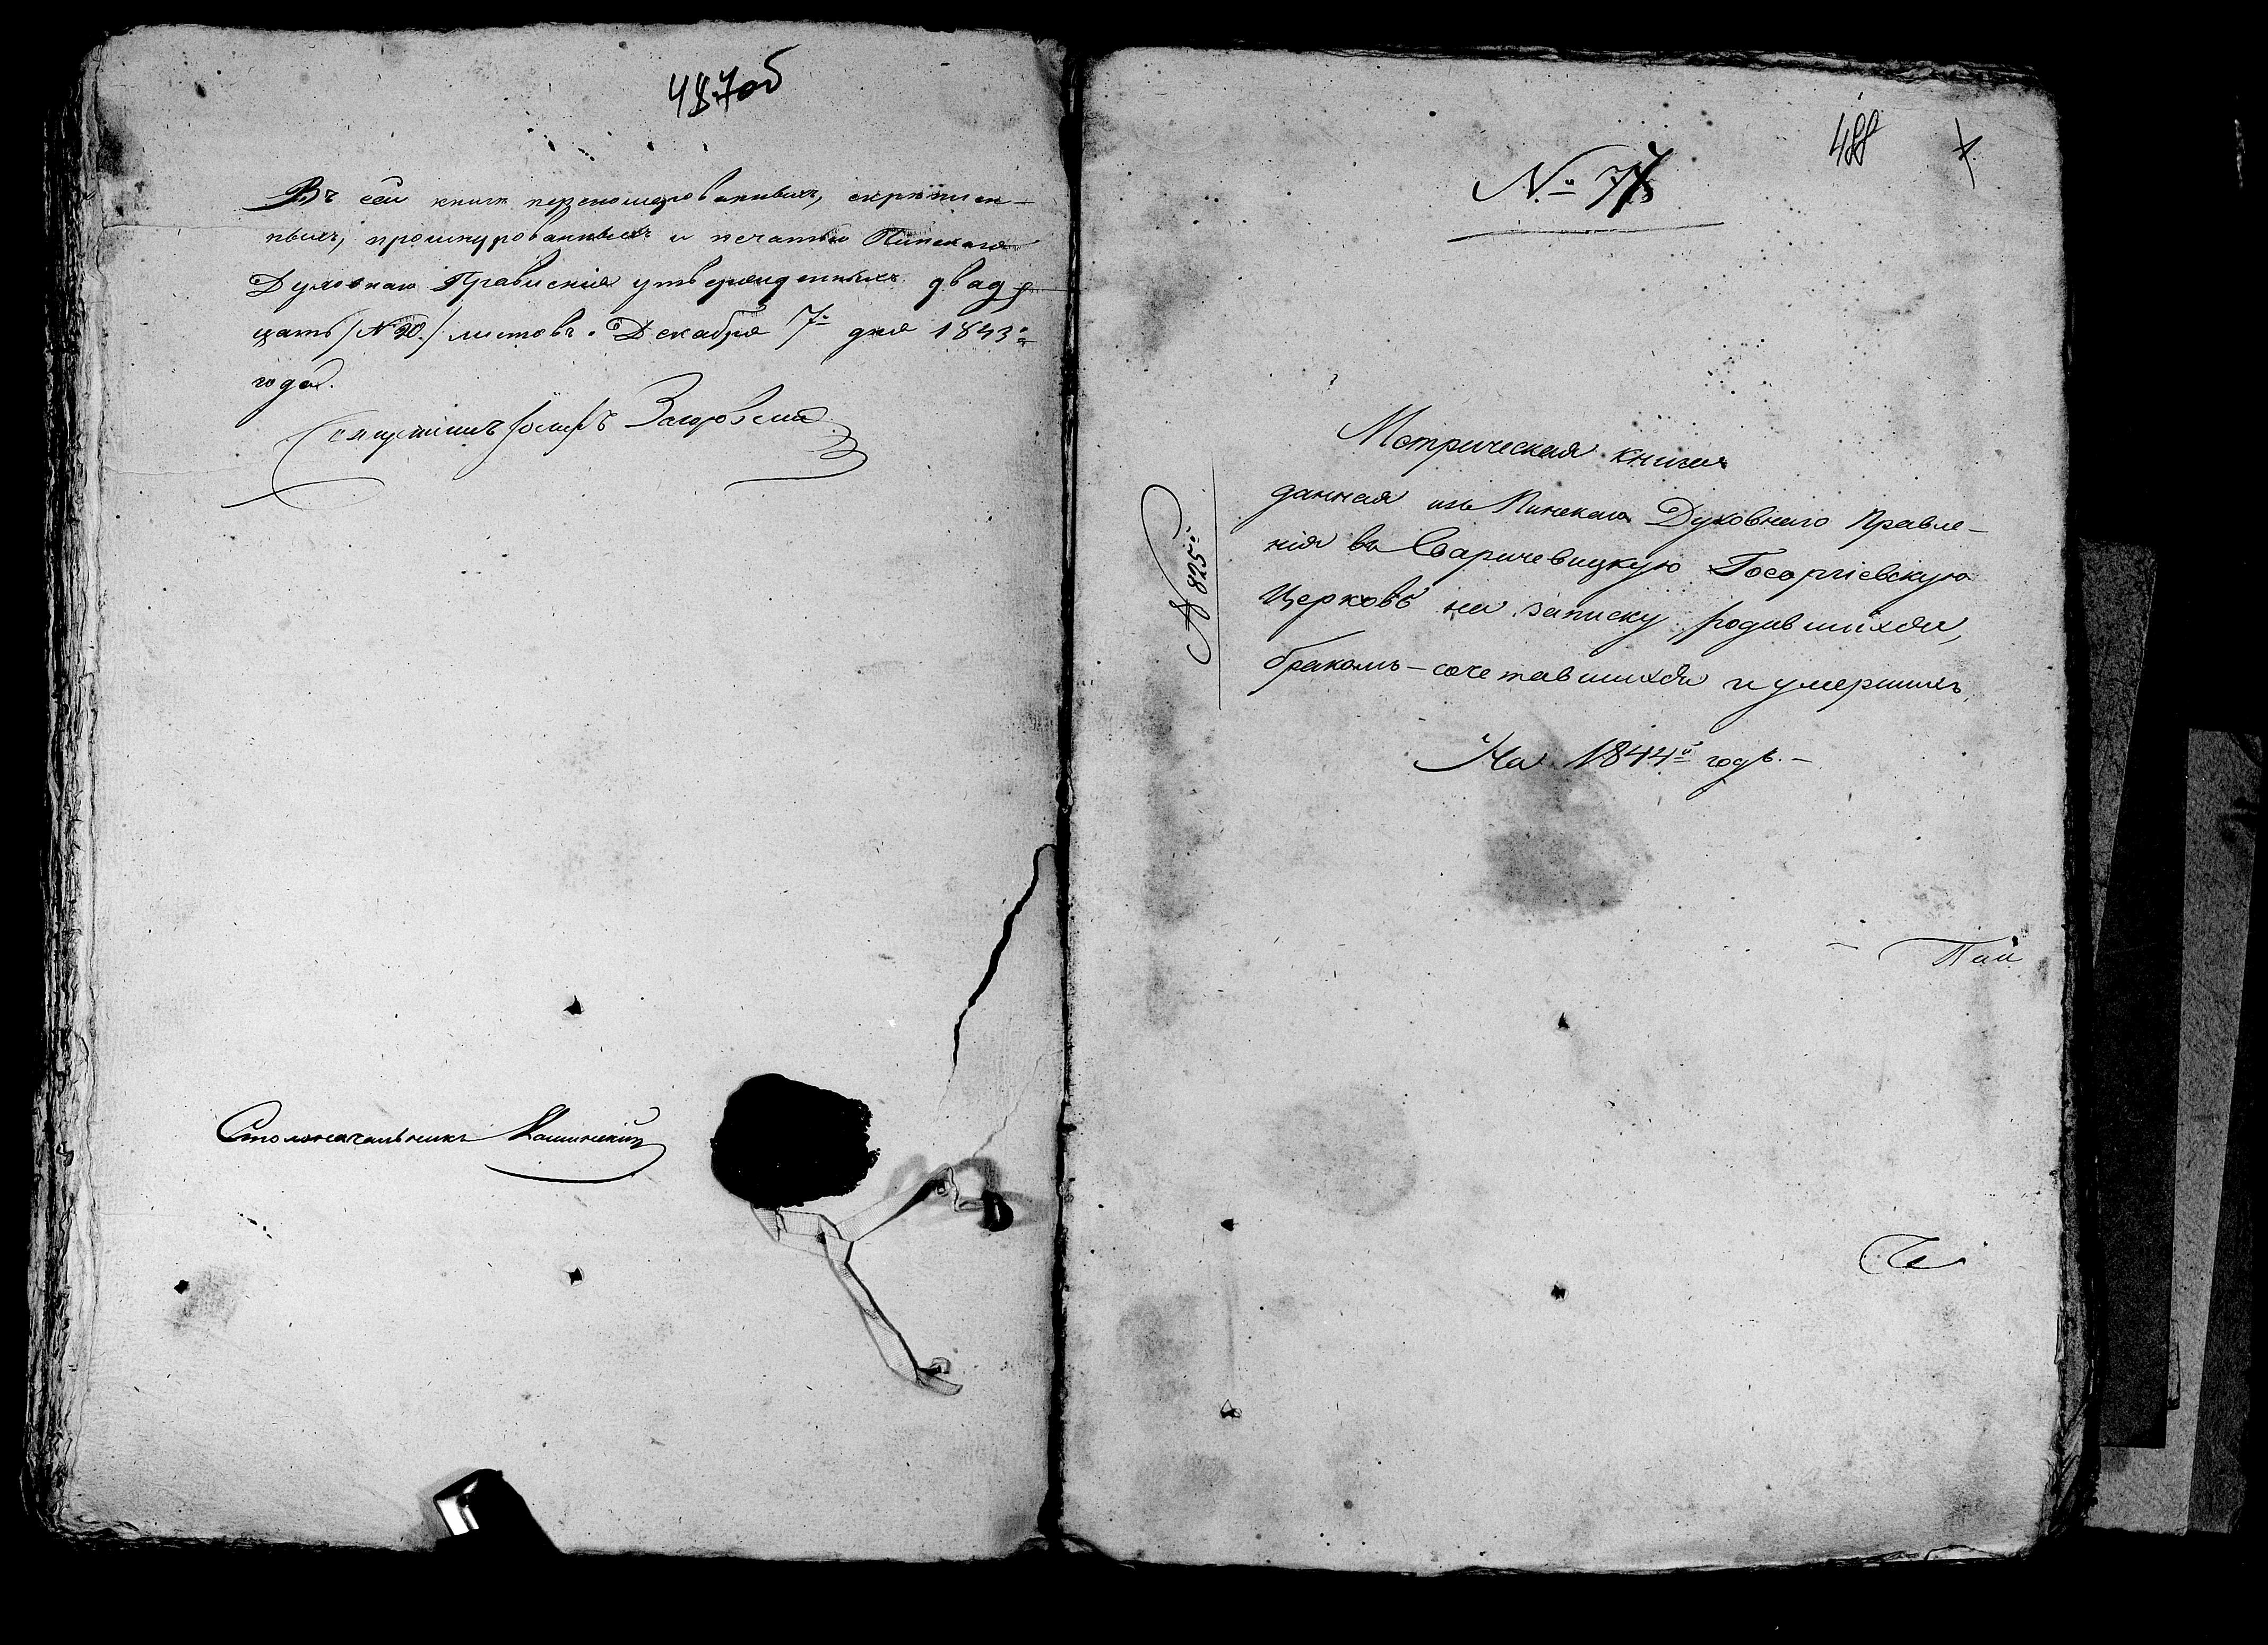 487об
Въ сей книгѣ перенумерованныхъ, скрѣплен-
ныхъ, прошнурованныхъ и печатью Пинскаго
Духовнаго Правленія утвержденныхъ двад-
цать /№ 20./ листовъ. Декабря 7го дня 1843го
года.
Іосифъ
Столоначальникъ
488
№ 77
Метрическая книга
данная изъ Пинскаго Духовнаго Правле-
нія въ Сваричевицкую Георгіевскую
Церковь на записку родившихся,
бракомъ-сочетавшихся и умершихъ
На 1844й годъ.-
№ 825й